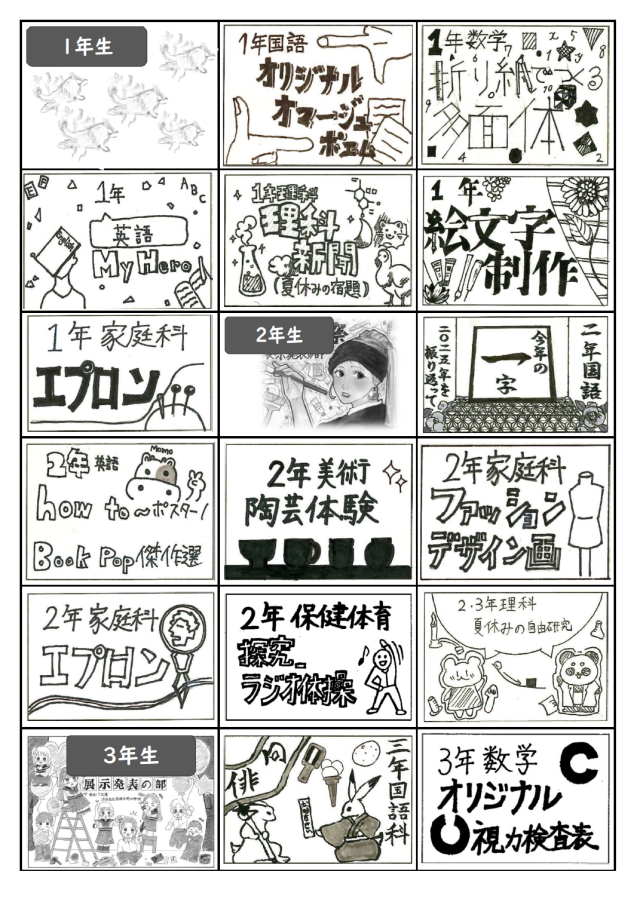 1年生
1年国語
オリジナル
オマージュ
ポエム
1年数学
折り紙でつくる
多面体
1年
ABC
英語
English
My Hero
1年理科
理科
新聞
(夏休みの宿題)
1年
絵文字
制作
1年家庭科
エプロン
2年生
二年国語
今年の
一
字
二〇二五年を
振り返って
2年英語
Momo
how to~ポスター/
Book Pop傑作選
2年美術
陶芸体験
2年家庭科
ファッション
デザイン画
2年家庭科
エプロン
2年保健体育
探究
ラジオ体操
2・3年理科
夏休みの自由研究
3年生
展示発表の部
三年国語科
俳句
3年数学
オリジナル
視力検査表